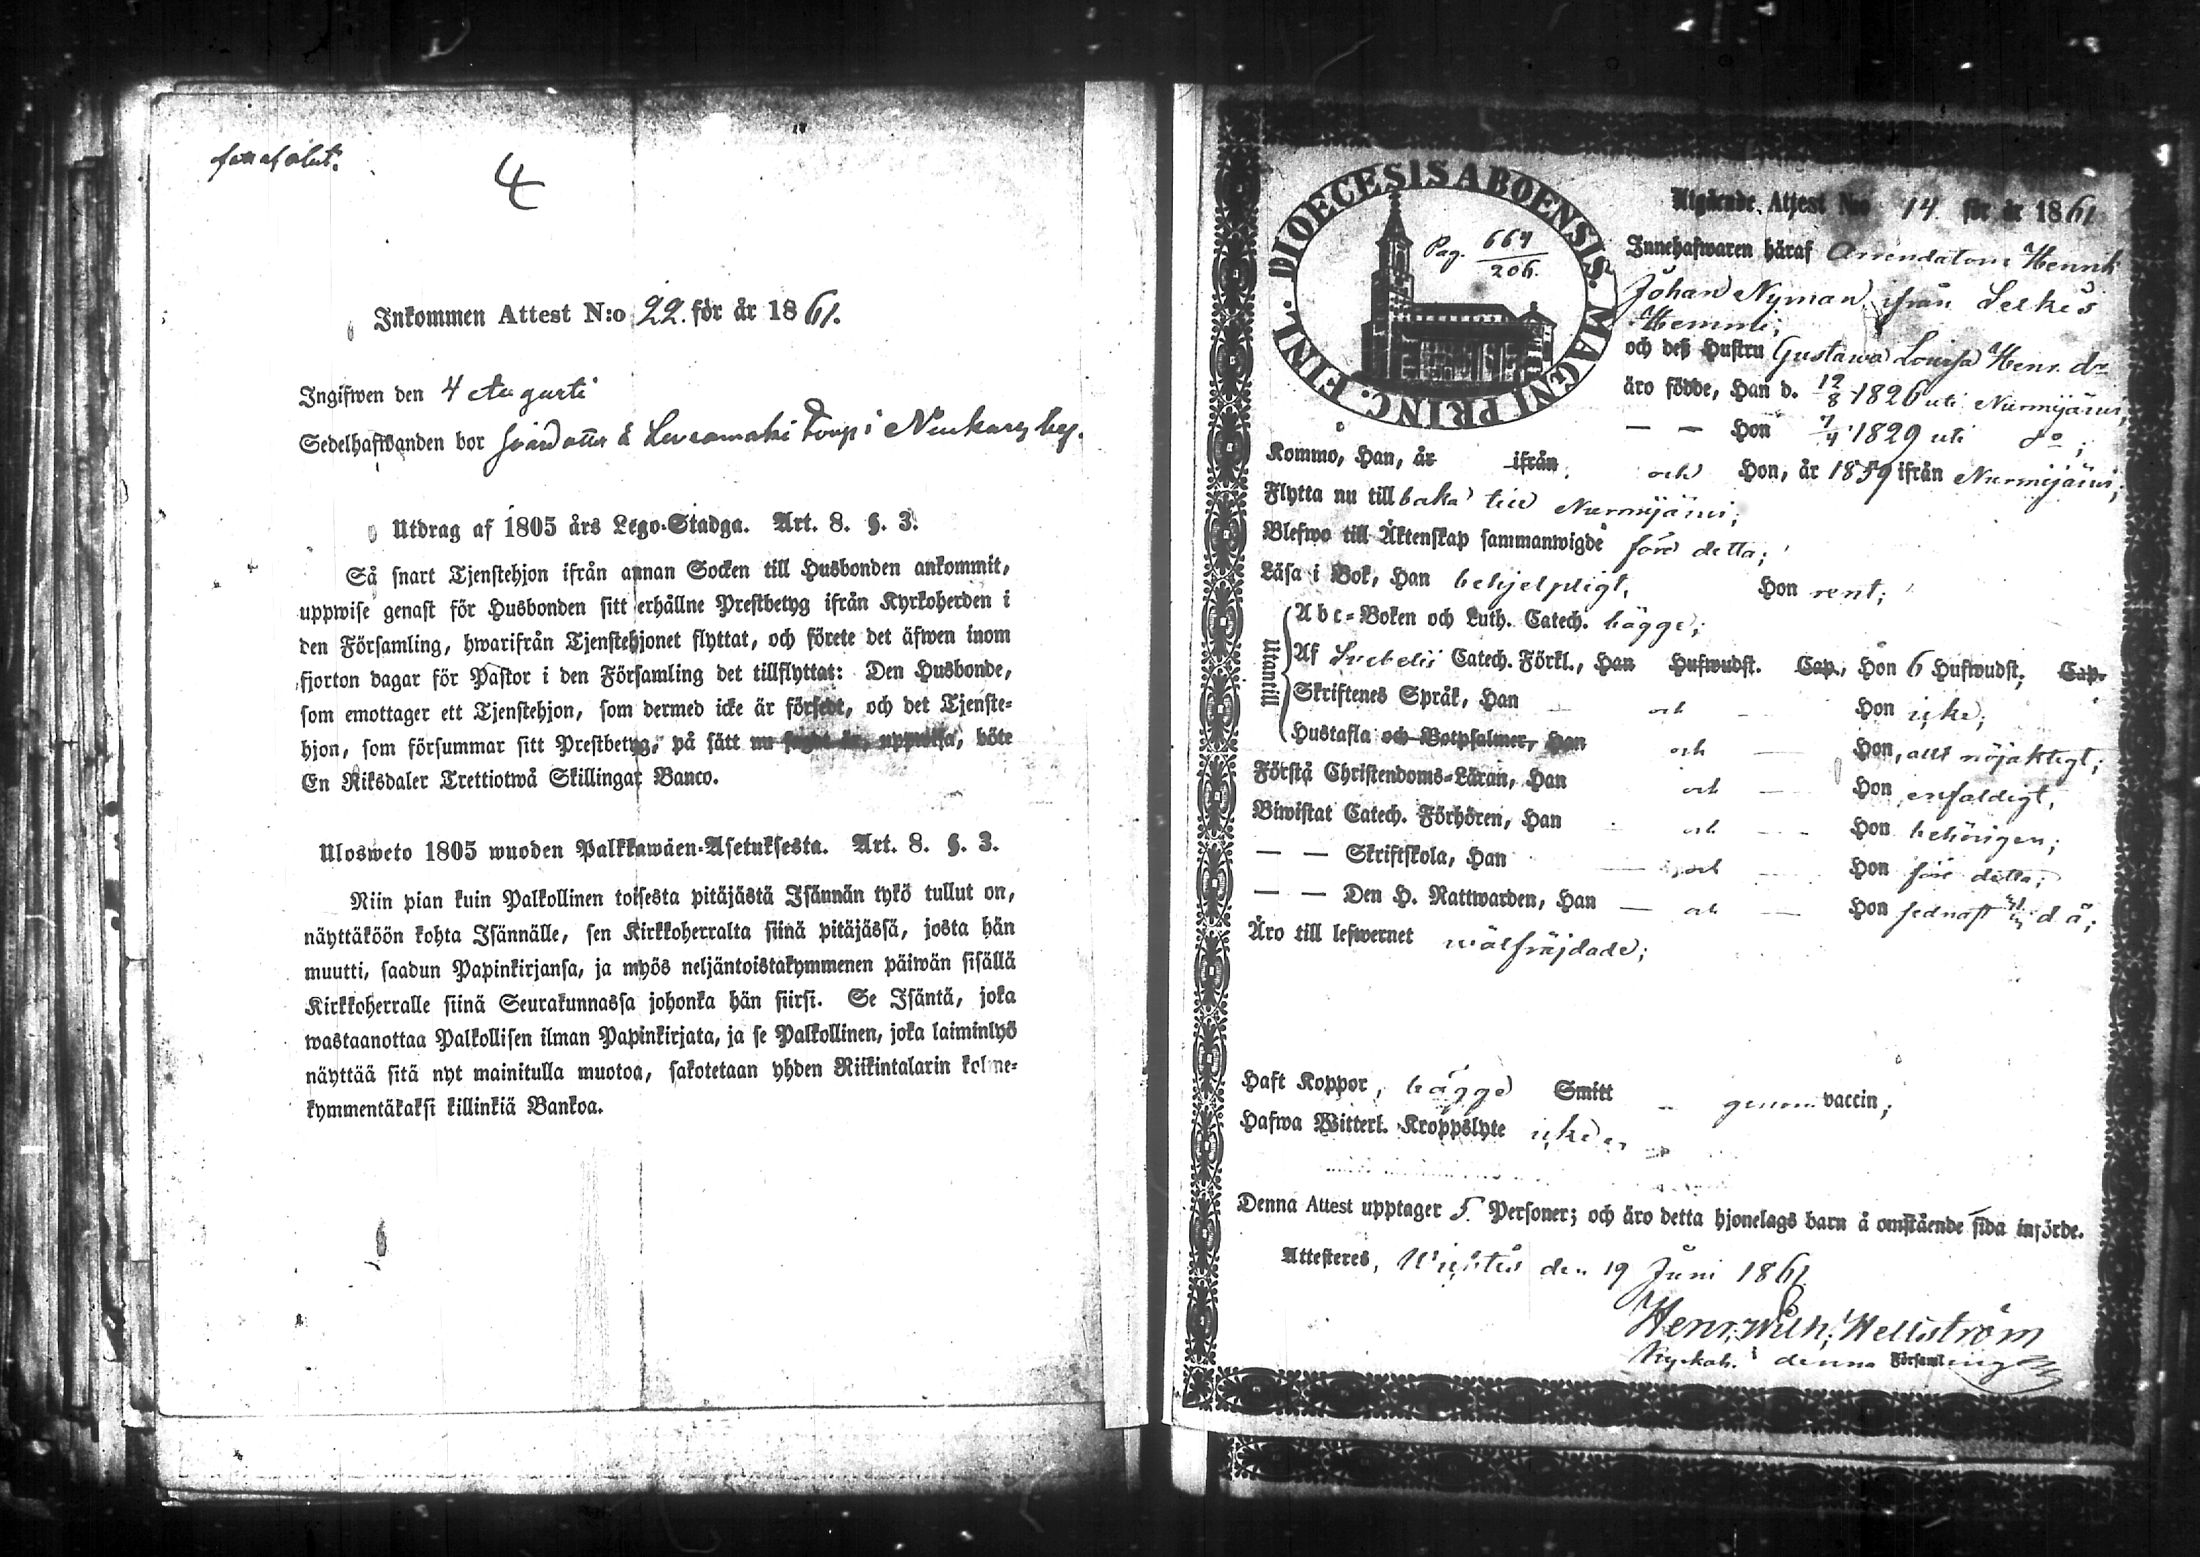 4
Inkommen Attest N:o 22. för år 1861.
Ingifwen den 4 Augusti
Sedelhafwanden bor Torp i by.
Utdrag af 1805 års Lego-Stadga. Art. 8. §. 3.
Så snart Tjenstehjon ifrån annan Socken till Husbonden ankommit,
uppwise genast för Husbonden sitt erhållne Prestbetyg ifrån Kyrkoherden i
den Församling, hwarifrån Tjenstehjonet flyttat, och förete det äfwen inom
fjorton dagar för Pastor i den Församling det tillflyttat: Den Husbonde,
som emottager ett Tjenstehjon, som dermed icke är försedt, och det Tjenste-
hjon, som försummar sitt Prestbetyg, på sätt nu sagdt är, uppwisa, böte
En Riksdaler Trettiotwå Skillingar Banco.
Ulosweto 1805 wuoden Palkkawäen-Asetuksesta. Art. 8. §. 3.
Niin pian kuin Palkollinen toisesta pitäjästä Isännän tykö tullut on,
näyttäköön kohta Isännälle, sen Kirkkoherralta siinä pitäjässä, josta hän
muutti, saadun Papinkirjansa, ja myös neljäntoistakymmenen päiwän sisällä
Kirkkoherralle siinä Seurakunnassa johonka hän siirsi. Se Isäntä, joka
wastaanottaa Palkollisen ilman Papinkirjata, ja se Palkollinen, joka laiminlyö
näyttää sitä nyt mainitulla muotoa, sakotetaan yhden Riikintalarin kolme-
kymmentäkaksi killinkiä Bankoa.
DIOECESIS ABOENSIS. MAGNI PRINC. FINL.
Pag. 664
206.
Utgående Attest N:o 14 för år 1861
Innehafwaren häraf Arrendatorn Henrik
Johan Nyman ifrån
och deß Hustru Gustawa Lovisa Henr. dr
äro födde, Han d. 12/8 1826 uti Nurmijärvi,
— — Hon 7/4 1829 uti do;
Kommo, Han, år ifrån och Hon, år 1859 ifrån Nurmijärvi;
Flytta nu tillbaka till Nurmijärvi;
Blefwo till Äktenskap sammanwigde före detta;
Läsa i Bok, Han behjelpligt, Hon rent;
Utantill
Abc-Boken och Luth. Catech. bägge;
Af Svebelii Catech. Förkl., Han Hufwudst. Cap., Hon 6 Hufwudst; Cap.
Skriftenes Språk, Han — och — Hon icke;
Hustafla och Botpsalmer, Han och — Hon, allt nöjaktigt;
Förstå Christendoms-Läran, Han och — Hon enfaldigt,
Biwistat Catech. Förhören, Han och — Hon behörigen;
— — Skriftskola, Han — och — Hon före detta;
— — Den H. Nattwarden, Han — och — Hon sednast d å;
Äro till lefwernet wälfräjdade;
Haft Koppor, bägge Smitt genom vaccin;
Hafwa Witterl. Kroppslyte icke
Denna Attest upptager 5. Personer; och äro detta hjonelags barn å omstående sida införde.
Attesteres, Wichtis den 19 Juni 1861
Henr. Wilh. Hellström
i denna Församling